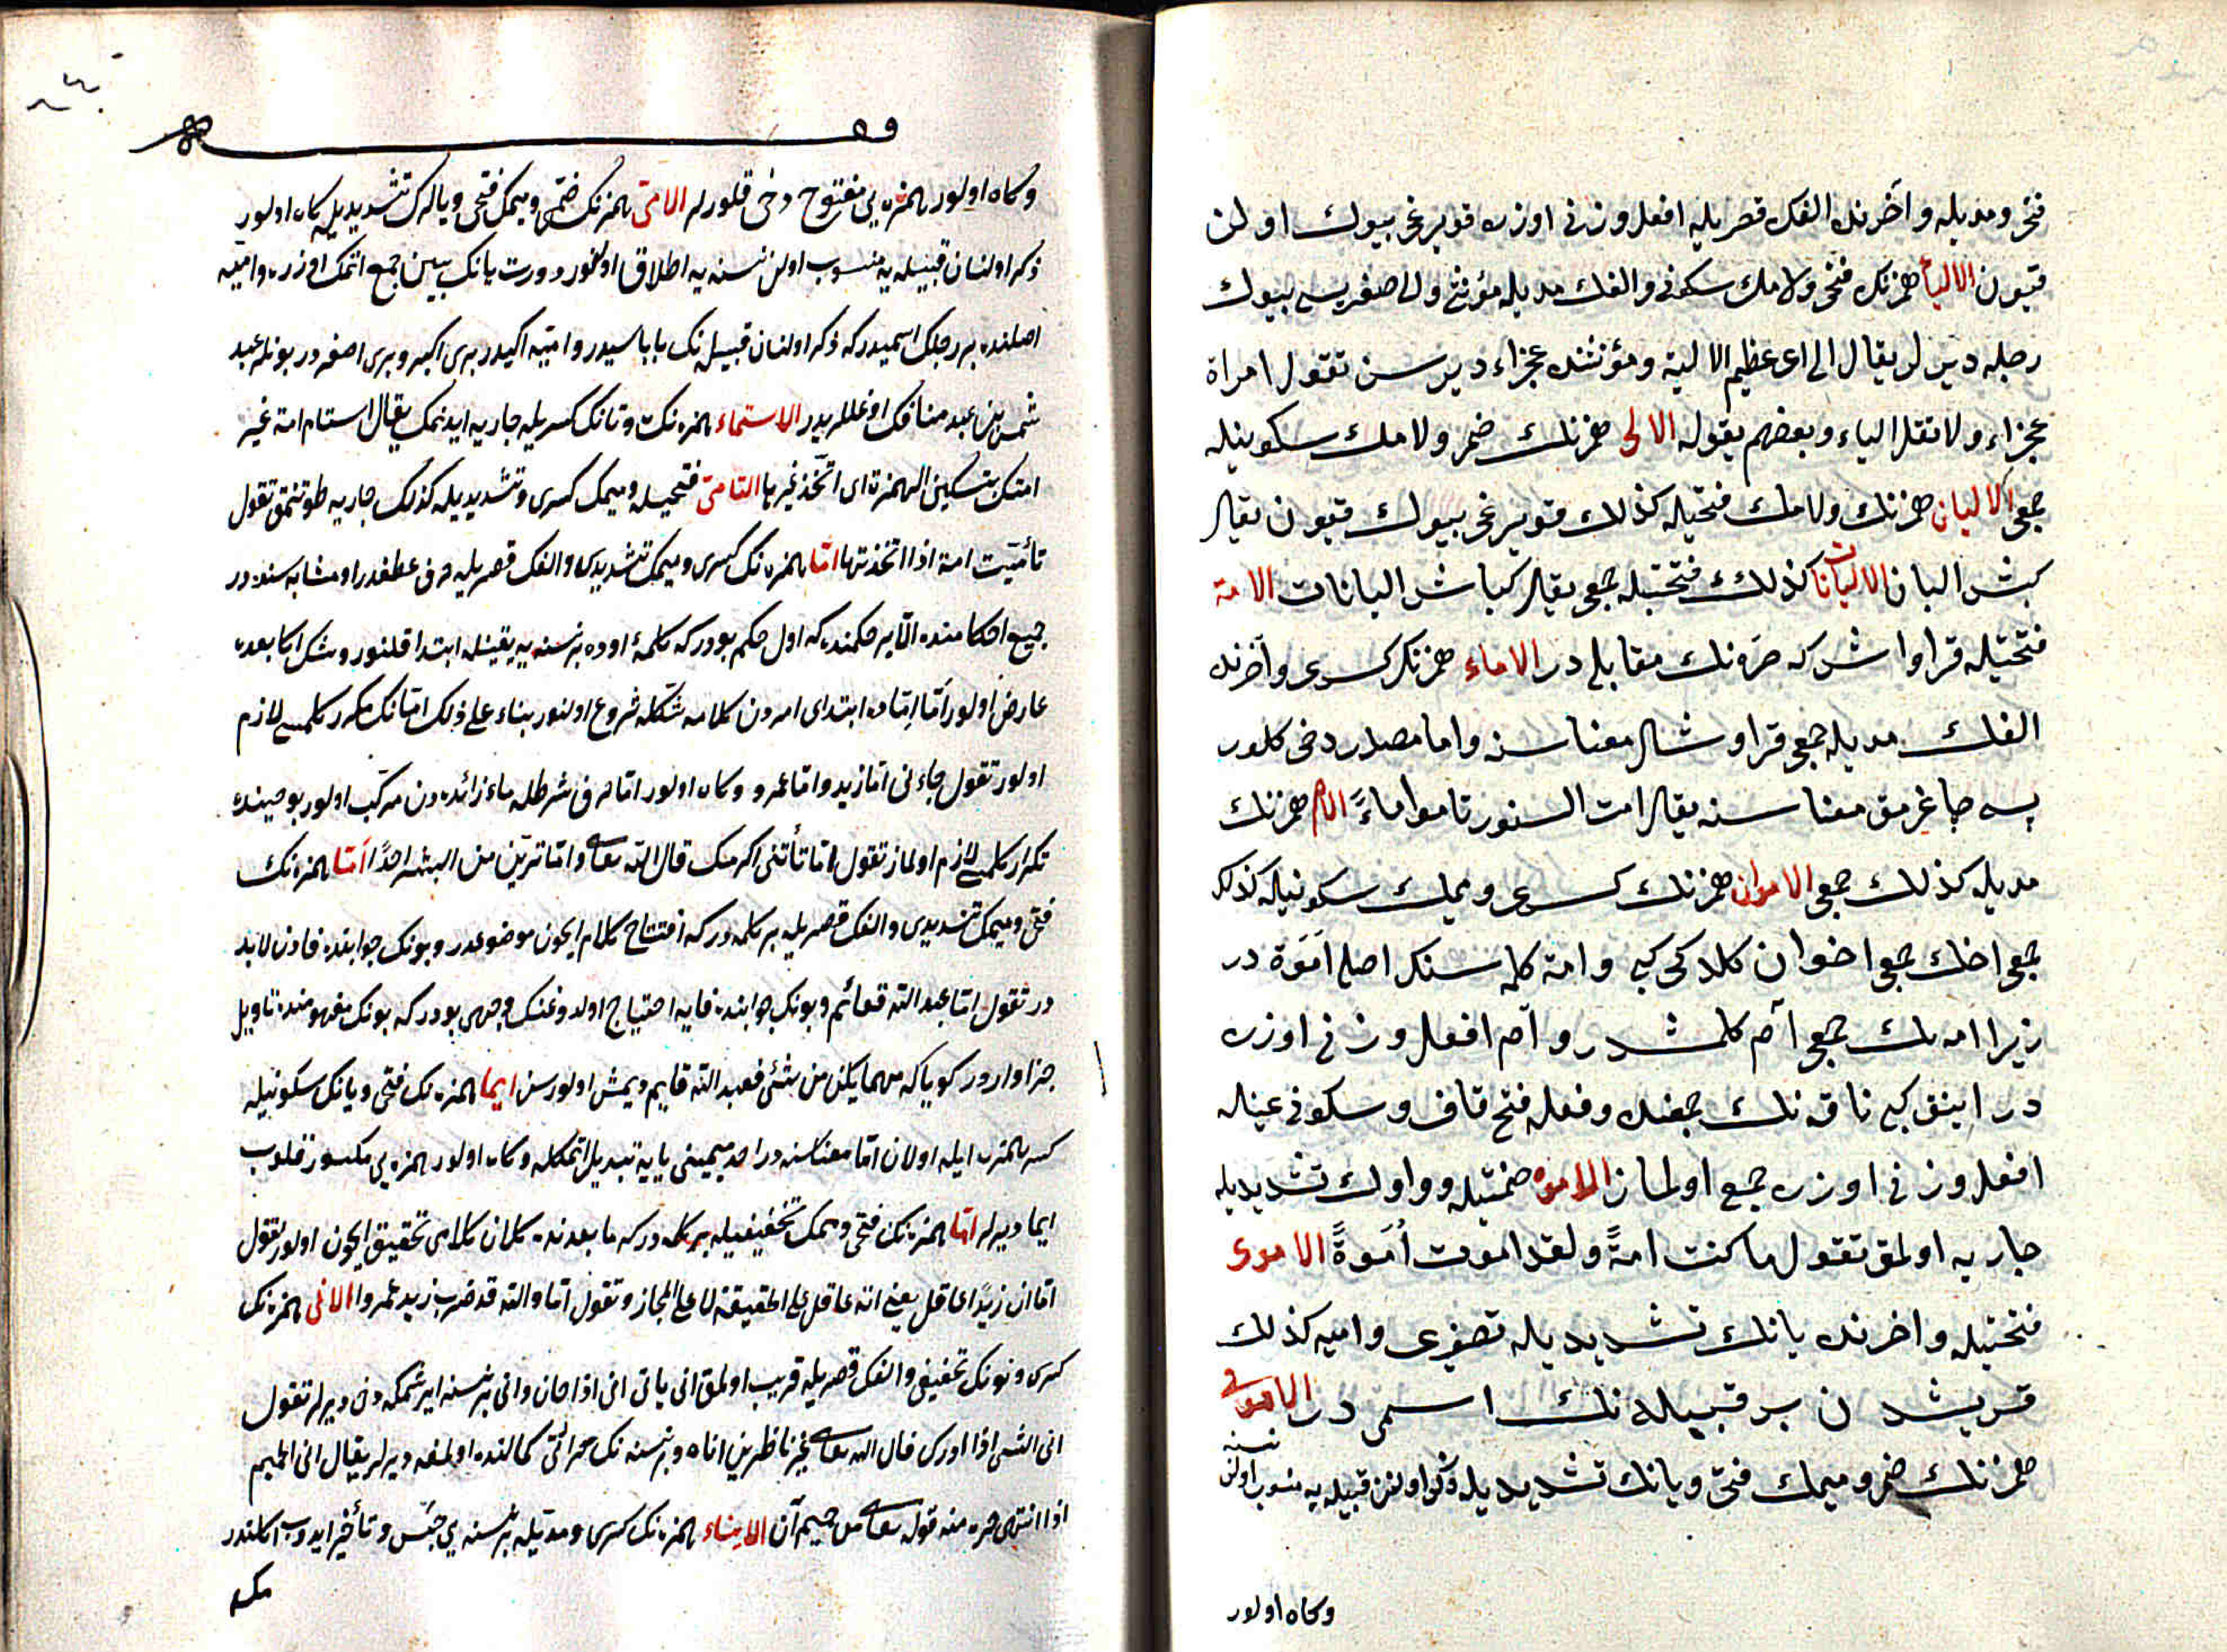 فتحی ومدیله وآخرنده الفک قصریله افعل وزنی اوزره قویرغی بیوك اولن
قیون الالیاء همزنك فتحی ولامك سکونی والفك مدیله مؤنثی والی صغریسی بیوك
رجله دیرلر یقال الی ای عظیم الالیة ومؤنثنده عجزاء دیرسن تقول امراة
عجزاء ولا تقل الیاء وبعضهم یقوله الالی همزنك ضمی ولامك سکونیله
جمعی الالیان همزنك ولامك فتحیله کذلك قویرغی بیوك قیون یقال
کبش الیان الالیانات کذلك فتحتیله جمعی یقال کباش الیانات الامة
فتحتیله قراواش که حره نك مقابلی در الاماء همزنك کسری وآخرنده
الفك مدیله جمعی قراوشلر معناسنه واما مصدر دخی کلور
جاغرمق معناسنه یقال امت السنور تاموا ماءً الام همزنك
مدیله کذلك جمعی الاموان همزنك کسری ومیمك سکونیله کذلك
جمعی اخك جمعی اخوان کلدکی کبی وامة کلمه سنك اصلی اَمَوَة در
زیرا امه نك جمعی آم کلمشدر وآم افعل وزنی اوزره
در اینق کبی ناقه نك جمعنده وفعله فتح قاف وسکون عینله
افعل وزنی اوزره جمع اولماز الاموه ضمتیله وواوك تشدیدیله
جاریه اولمق تقول ما کنت امةً ولقد اموت اُمُوةً الاموی
فتحتیله واخرنده یانك تشدیدیله تصغری وامیه کذلك
قریشدن بر قبیله نك اسمی در الاموی
همزنك ضمی ومیمك فتحی ویانك تشدیدیله ذکر اولنن قبیله یه منسوب اولن نسنه
وکاه اولور
وکاه اولور همزه یی مفتوح دخی قلورلر الامی همزنك ضمی ومیمك فتحی ویالرك تشدیدیله کاه اولور
ذکر اولنان قبیله یه منسوب اولن نسنه یه اطلاق اولنور دورت یانك بینن جمع اتمك اوزره وامیه
اصلنده بر رجلك اسمیدر که ذکر اولنان قبیله نك باباسیدر وامیه ایکیدر بری اکبر وبری اصغر در بونلر عبد
شمس بن عبد منافك اوغللریدر الاستماء همزه نك وتانك کسریله جاریه ایدنمك یقال استام امة غیر
امتك بتسکین الهمزة ای اتخذ غیرها التامی فتحیله ومیمك کسری وتشدیدیله کذلك جاریه طوتنمق تقول
تأمیت امة اذا اتخذتها اما همزه نك کسری ومیمك تشدیدی والفك قصریله حرف عطفدر او مشابه سنده در
جمیع احکامنده الا بر حکمنده که اول حکم بودر که کلمۀ اوده بر نسنه یه یقینله ابتدا قلنور وشك اکا بعده
عارض اولور اما اِمّاده ابتدای امردن کلامه شکله شروع اولنور بناء علی ذلك امانك مکرر کلمسی لازم
اولور تقول جاءنی اما زید واما عمرو وکاه اولور اما حرف شرطله ماء زائده دن مرکب اولور بو حینده
تکرار کلمسی لازم اولماز تقول اما تأتنی اکرمك قال الله تعالی واما ترین من البشر احدًا اَمّا همزه نك
فتحی ومیمك تشدیدی والفك قصریله بر کلمه در که افتتاح کلام ایچون موضوعدر وبونك جوابنده فادن لابد
در تقول اما عبد الله فقائم وبونك جوابنده فایه احتیاج اولدوغنك وجهی بودر که بونك مفهومنده تاویل
جزا واردر کویا که مهما یکن من شئ فعبد الله قایم دیمش اولورسن ایما همزه نك فتحی ویانك سکونیله
کسر همزه ایله اولان اما معناسنه در احد میمینی یایه تبدیل اتمکله وکاه اولور همزه یی مکسور قلوب
ایما دیرلر اما همزه نك فتحی ومیمك تخفیفیله بر کلمه در که ما بعدنده کلان کلامی تحقیق ایچون اولور تقول
اما ان زیدًا عاقل یعنی انه عاقل علی الحقیقة لا علی المجاز وتقول اما والله قد ضرب زید عمروا الانی همزه نك
کسری ونونك تخفیفی والفك قصریله قریب اولمق انی یانی انی اذا حان وانی بر نسنه ایرشمکه دخی دیرلر تقول
انی الشی اذا ادرك قال الله تعالی غیر ناظرین اناه وبر نسنه نك حرارتی کمالنده اولمغه دیرلر یقال انی الحمیم
اذا انتهی حره منه قوله تعالی من حمیم آن الایناء همزه نك کسری ومدیله بر نسنه یی حبس وتأخیر ایدوب اکلندر
مك